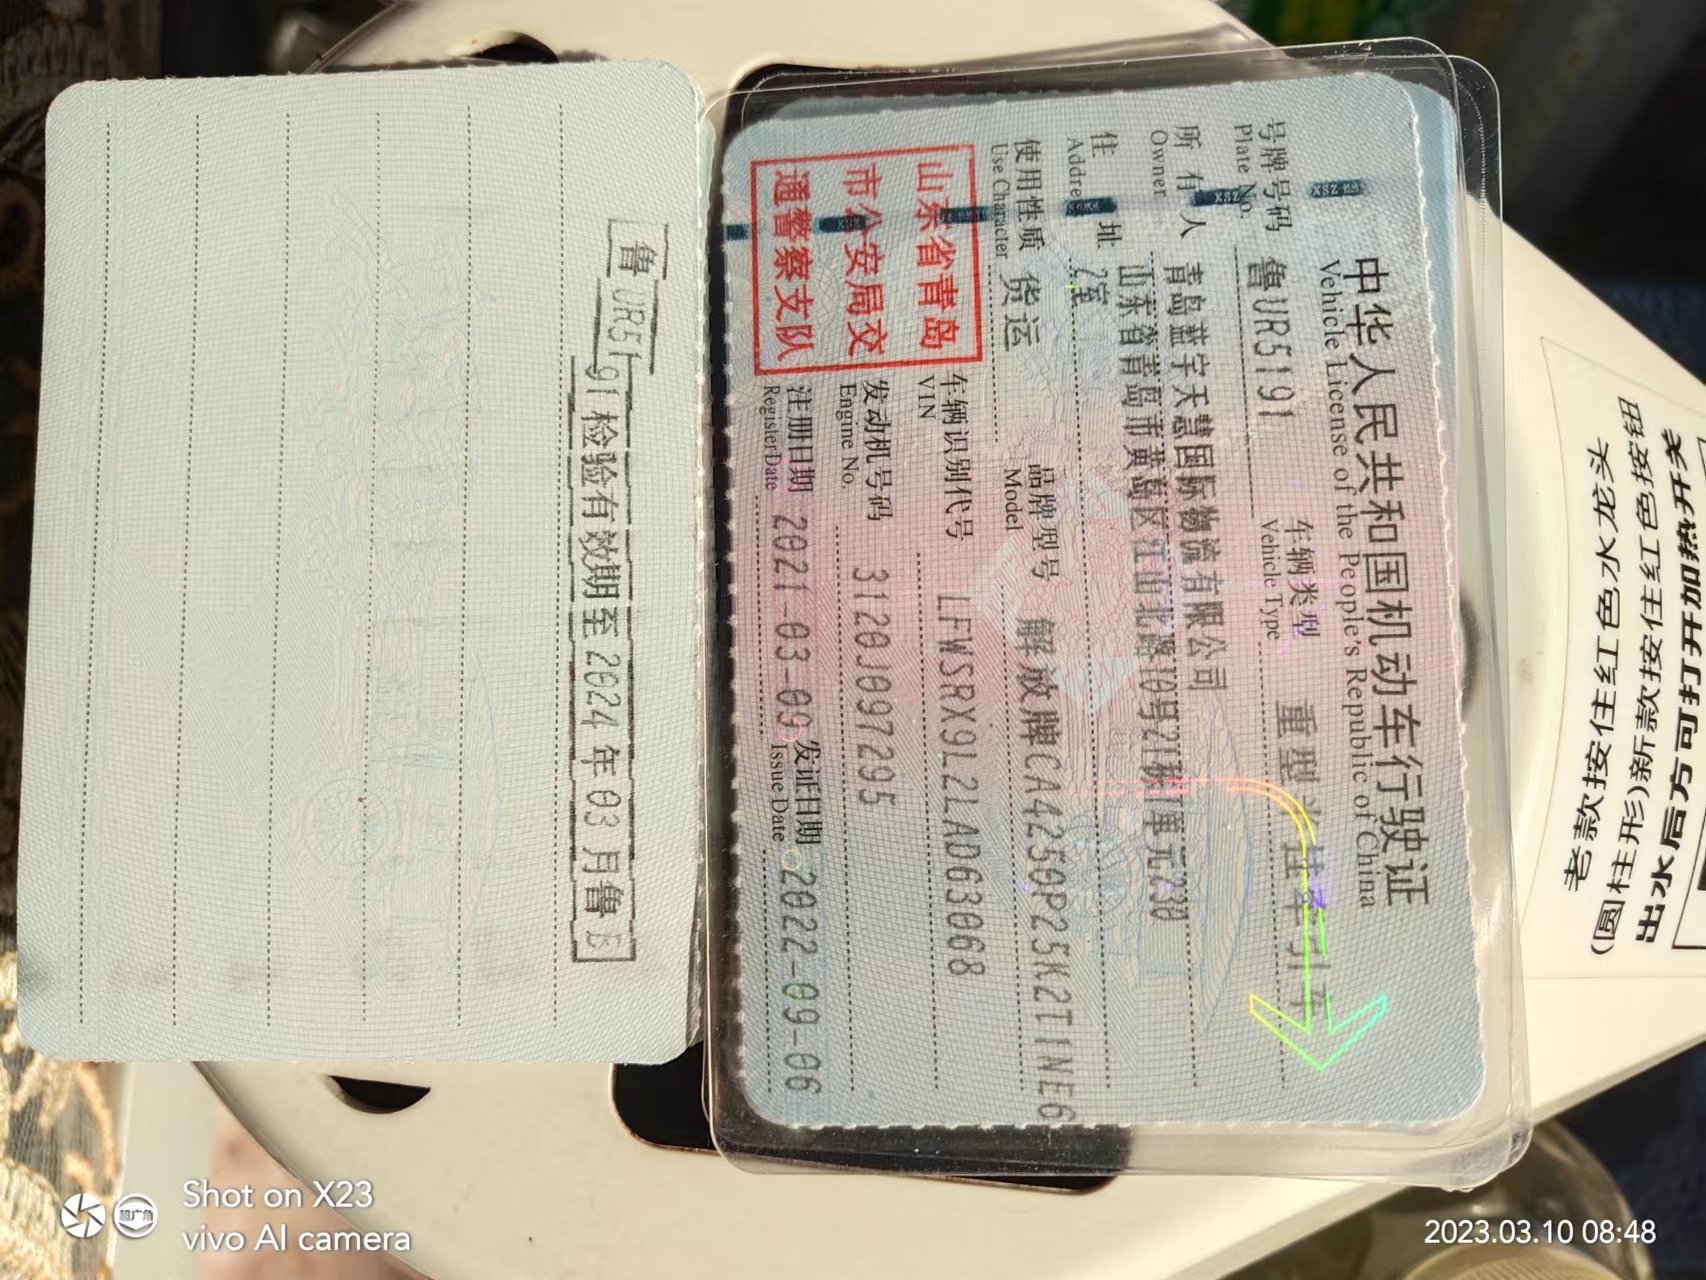 中华人民共和国机动车行驶证
Vehicle License of the People's Republic of China
号牌号码 鲁UR5191 车辆类型 重型半挂牵引车
Plate No. Vehicle Type
所有人 青岛蓝宇天慧国际物流有限公司
Owner
住址 山东省青岛市黄岛区江山北路10号21栋1单元230
Address 2室
使用性质 货运 品牌型号 解放牌CA4250P25K2T1NE6
Use Character Model
山东省青岛
市公安局交
通警察支队
车辆识别代号 LFWSRX9L2LAD63068
VIN
发动机号码 3120J097295
Engine No.
注册日期 2021-03-09 发证日期 2022-09-06
Register Date Issue Date
鲁UR5191检验有效期至2024年03月鲁B
老款按住红色水龙头
(圆柱形)新款按住红色按钮
出水后方可打开加热开关
超广角
Shot on X23
vivo AI camera
2023.03.10 08:48